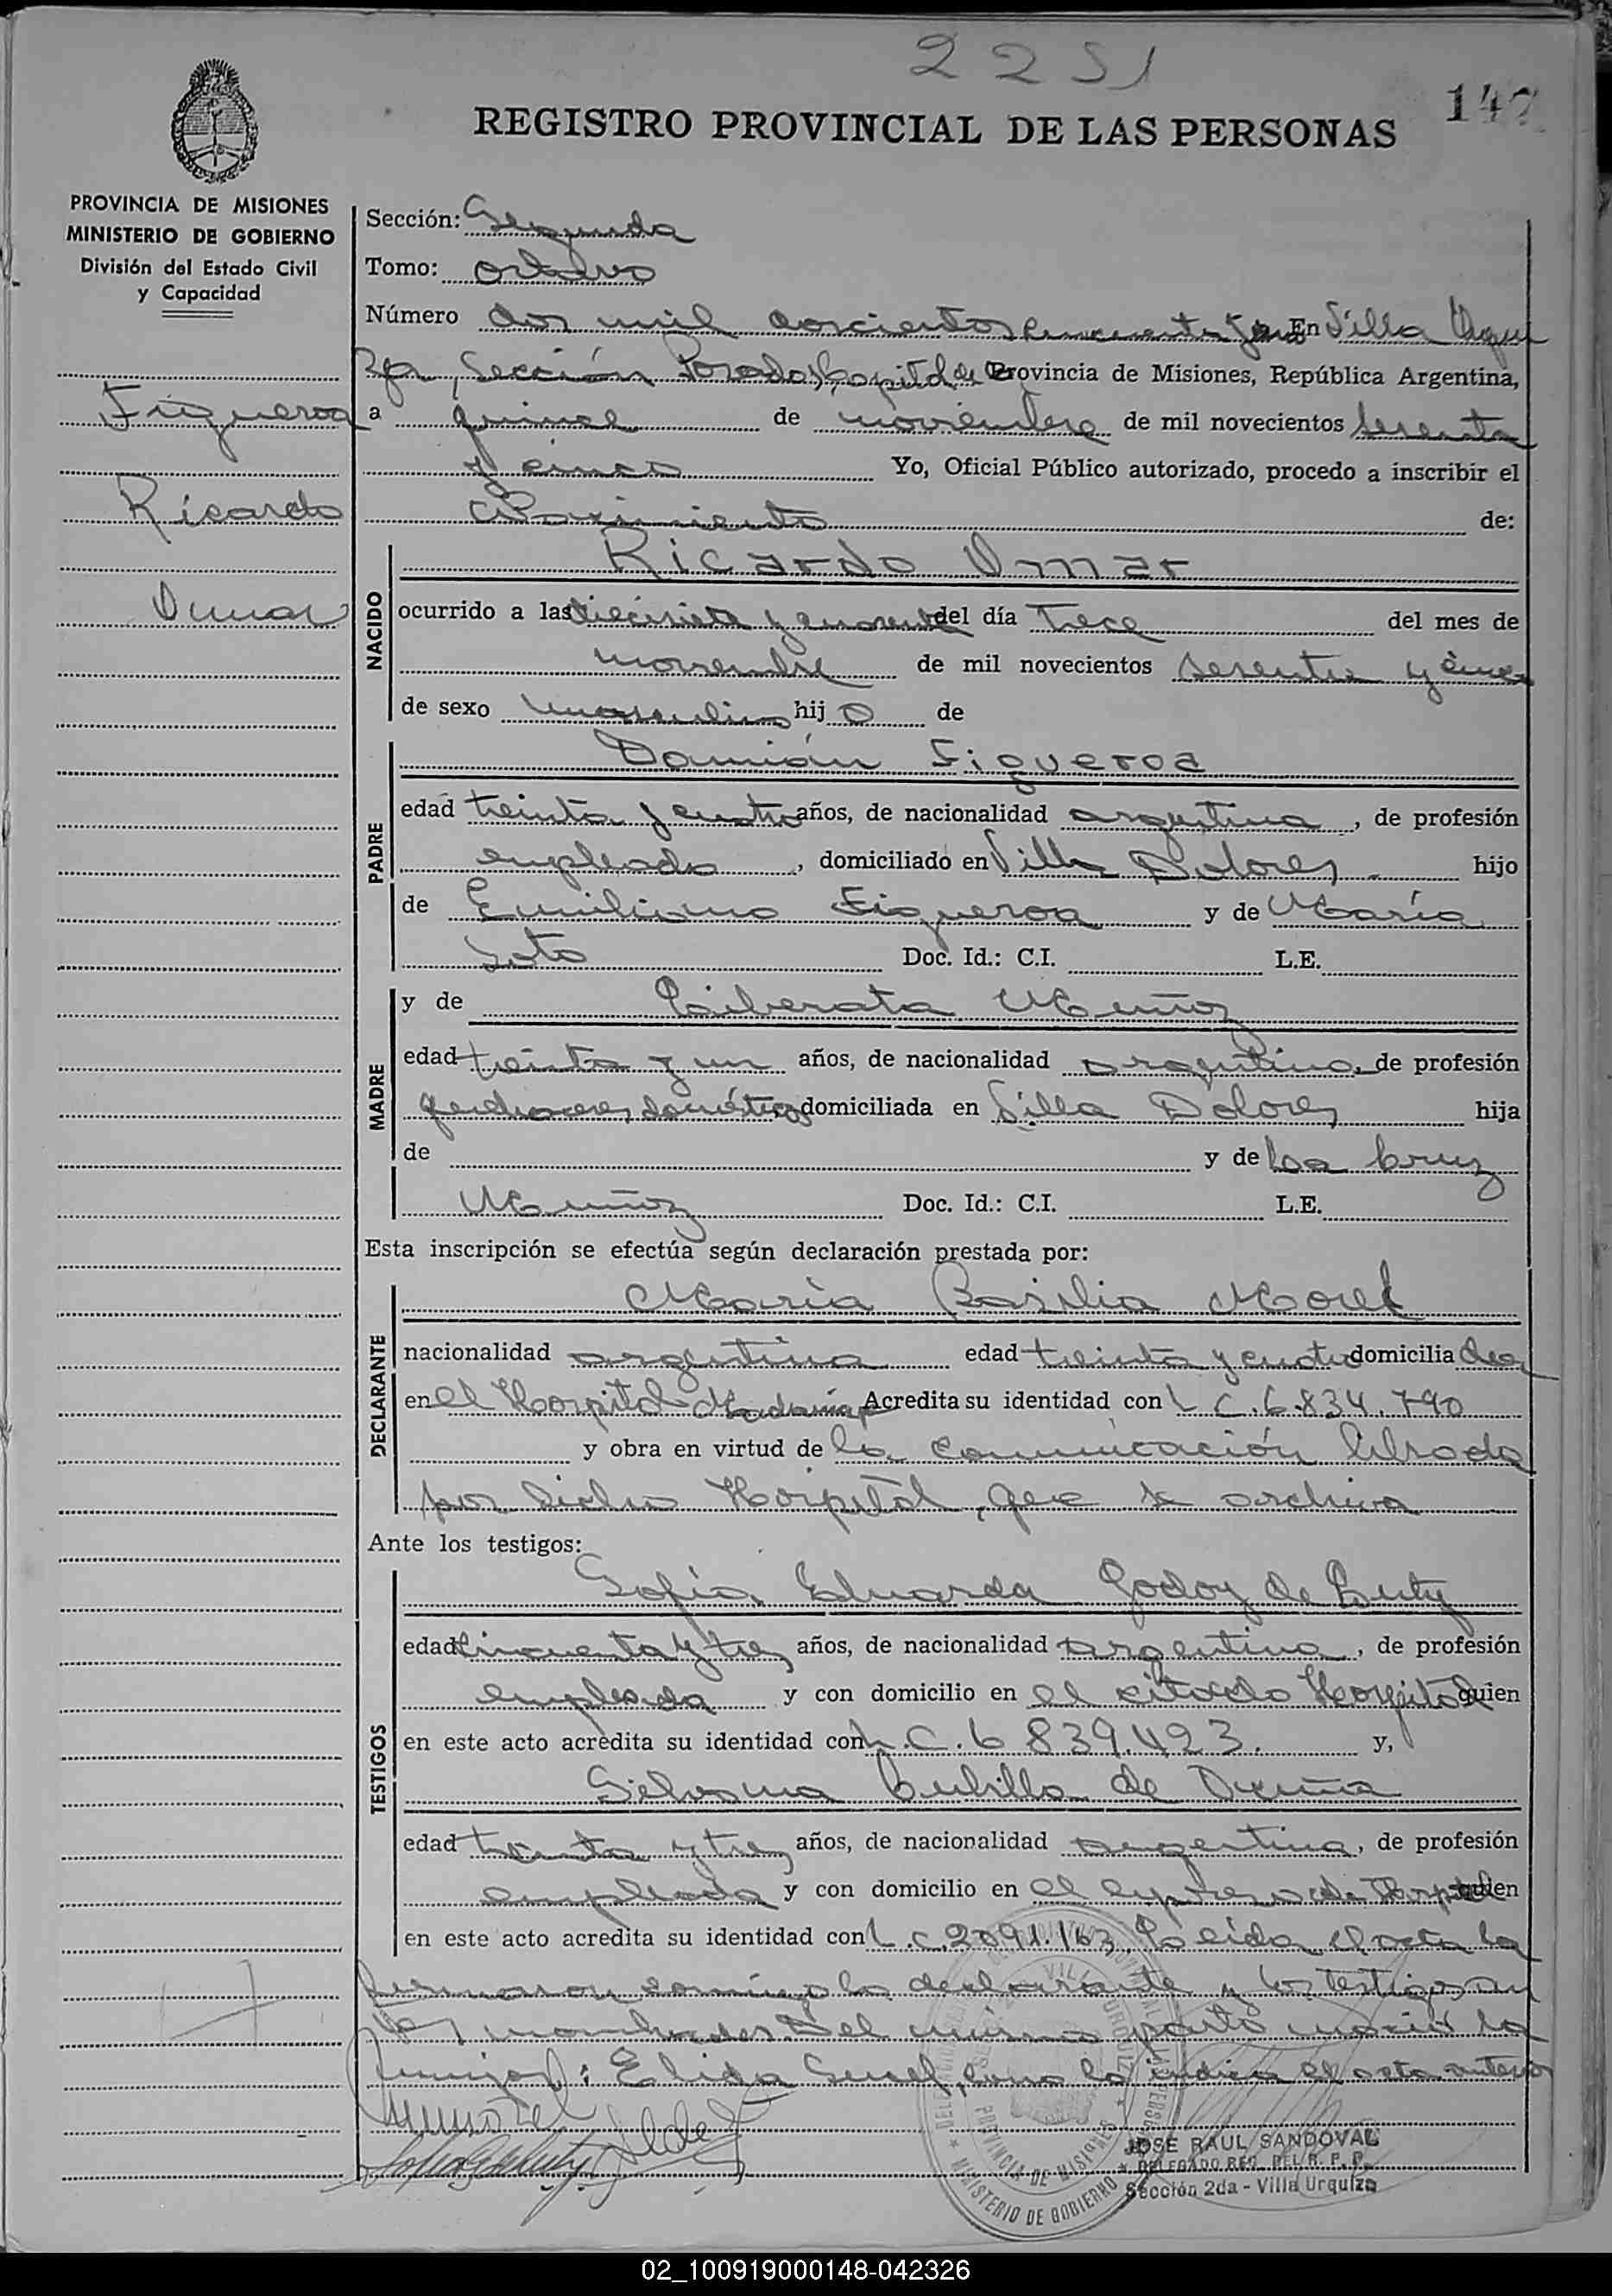 2251
147
REGISTRO PROVINCIAL DE LAS PERSONAS
PROVINCIA DE MISIONES
MINISTERIO DE GOBIERNO
División del Estado Civil
y Capacidad
Figueroa
Ricardo
Omar
Sección: Segunda
Tomo: octavo
Número dos mil doscientos cincuenta y uno En Villa Urqui
za, Sección Posadas, Capital de Provincia de Misiones, República Argentina,
a quince de noviembre de mil novecientos sesenta
y cinco Yo, Oficial Público autorizado, procedo a inscribir el
Nacimiento de:
NACIDO
Ricardo Omar
ocurrido a las diecisiete y cuarenta del día trece del mes de
noviembre de mil novecientos sesenta y cinco
de sexo masculino hijo de
PADRE
Damián Figueroa
edad treinta y cuatro años, de nacionalidad argentina, de profesión
empleado, domiciliado en Villa Dolores hijo
de Emiliano Figueroa y de María
Soto Doc. Id.: C.I. L.E.
MADRE
y de Liberata Muñoz
edad treinta y un años, de nacionalidad argentina, de profesión
quehaceres domésticos domiciliada en Villa Dolores hija
de y de La Cruz
Muñoz Doc. Id.: C.I. L.E.
Esta inscripción se efectúa según declaración prestada por:
DECLARANTE
María Basilia Morel
nacionalidad argentina edad treinta y cuatro domicilia da
en el Hospital Madariaga Acredita su identidad con L C. 6.834.790
y obra en virtud de la comunicación librada
por dicho Hospital, que se archiva
Ante los testigos:
TESTIGOS
Sofía Eduarda Godoy de
edad cincuenta y tres años, de nacionalidad argentina, de profesión
empleada y con domicilio en el citado Hospital quien
en este acto acredita su identidad con L.C. 6 839.493. y,
Silvana Cubilla de
edad treinta y tres años, de nacionalidad argentina, de profesión
empleada y con domicilio en el expresado Hospital quien
en este acto acredita su identidad con L.C. 2091.163. Leída el acta la
firmaron conmigo la declarante y los testigos
nombrados. Del mismo parto nació la
mujer: Elida, como lo indica el acta anterior
JOSE RAUL SANDOVAL
DELEGADO REG. DEL R. P. P.
Sección 2da - Villa Urquiza
MINISTERIO DE GOBIERNO
PROVINCIA DE MISIONES
VILLA URQUIZA
02_100919000148-042326